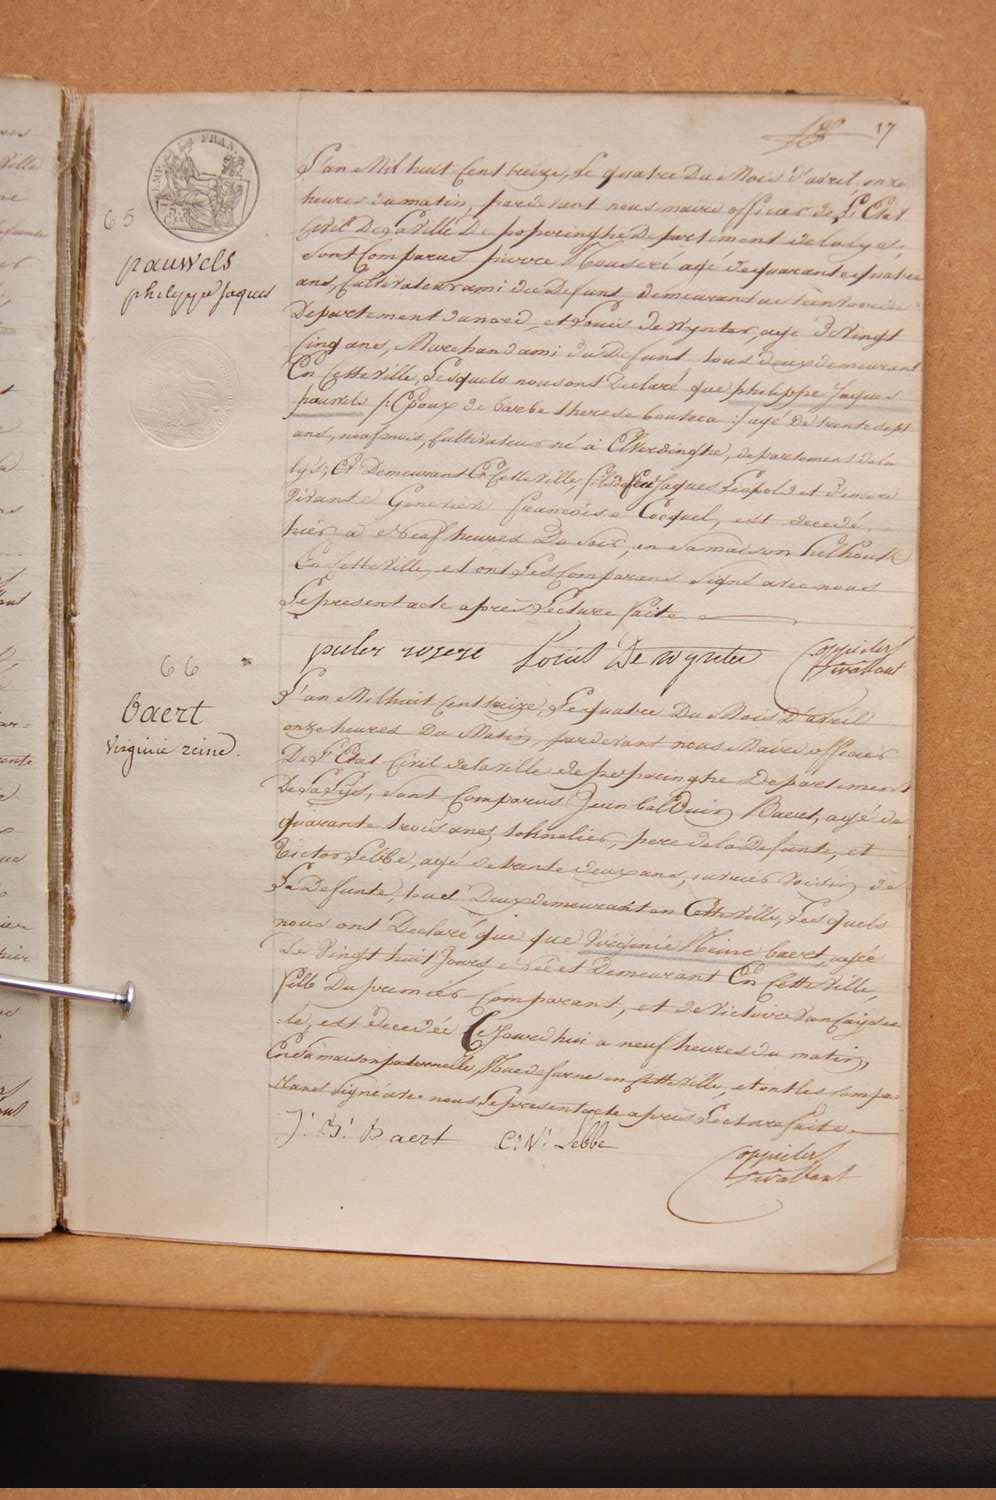 17
EMP. FRAN.
65
pauwels
philippe Jaques
L'an Mil huit Cent treize, Le quatre du Mois d'avril, onze
heures du matin, pardevant nous maire officier de L'Etat
Civil De La Ville De poperinghe Departement de la Lys,
sont Comparus pierre agé de quarante quatre
ans, Cultivateur ami du Defunt, demeurant a
Departement du nord, et Louis de Wynter, agé de Vingt
Cinq ans, Marchand ami du Defunt, tous deux demeurant
En Cette Ville, Lesquels nous ont Declaré que philippe Jaques
pauwels /: Epoux de barbe therese :/ agé De trente sept
ans, neuf mois, Cultivateur né a Elverdinghe, departement de la
lys, Et Demeurant En Cette Ville, fils de feu Jaques Leopold et d'encore
Vivante Genevieve francoise Cocquel, est decedé
hier a Neuf heures Du Soir, en sa maison
En Cette Ville, et ont Les Comparans Signé avec nous
Le present acte après Lecture faite
Louis De Wynter
66
baert
Virginie reine.
L'an Mil huit Cent treize, Le quatre Du Mois D'avril
onze heures Du Matin, pardevant nous Maire officier
De L'Etat Civil de la ville de poperinghe Departement
De La Lys, sont Comparus Jean balduin Baert, agé de
quarante trois ans, tohnelier, pere de la defunte, et
Victor Lebbe, agé de trente deux ans, Voisin de
La Defunte, tous Deux demeurant en Cette Ville, Lesquels
nous ont Declaré que que Virginie Reine baert, agée
De Vingt huit Jours, née et Demeurant En Cette Ville,
fille Du premier Comparant, et de Victoire
-le, est decedée Cejourd'hui a neuf heures du matin,
En sa maison paternelle, Rue de furne en Cette Ville, et ont les Compa-
Rans Signé avec nous, Le present acte après Lecture faite
J. B. Baert C. V. Lebbe